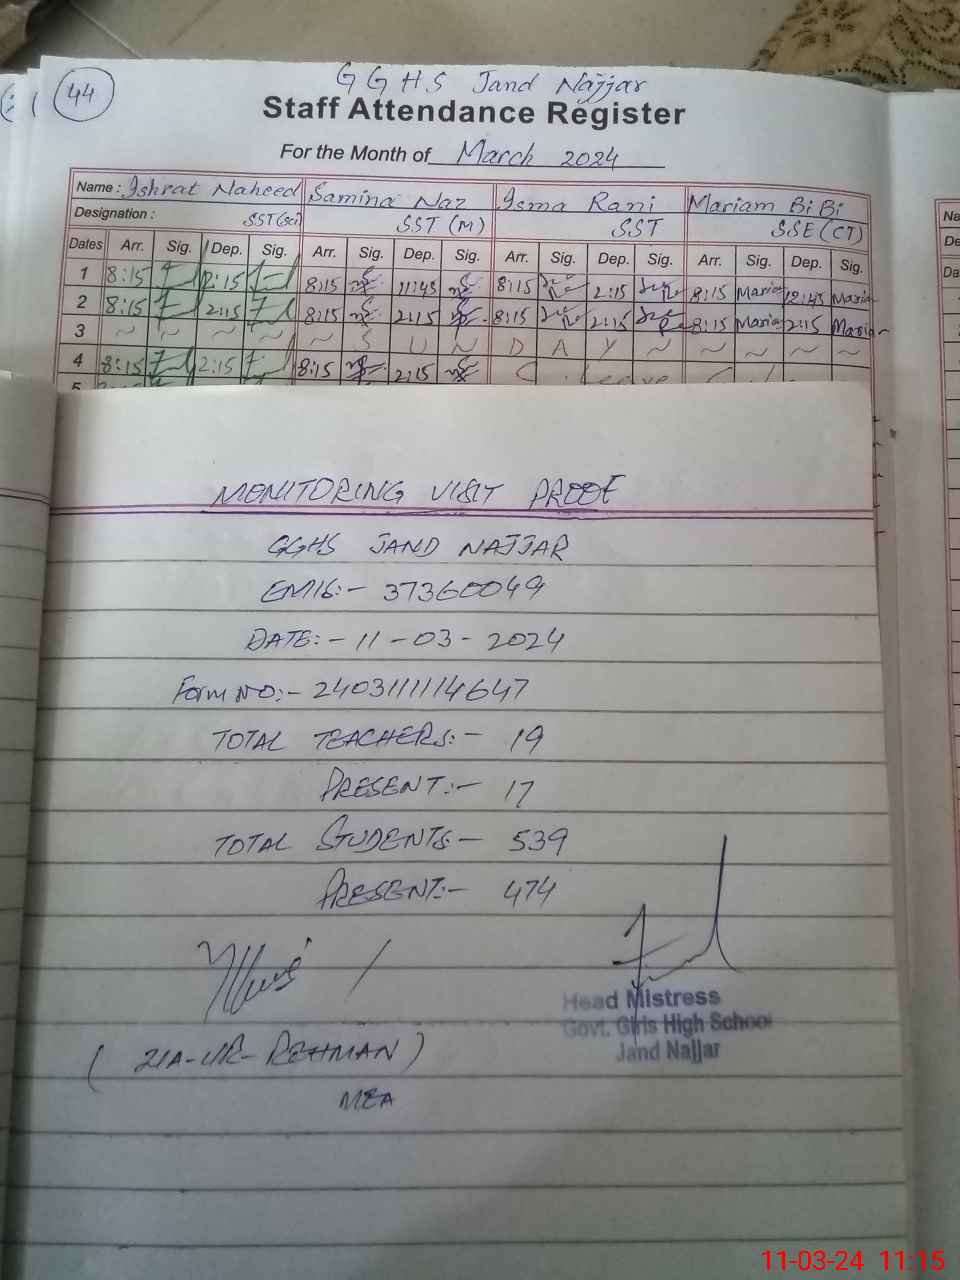 44
GGHS Jand Najjar
Staff Attendance Register
For the Month of March 2024
Name : Ishrat Naheed Samina Naz Isma Rani Mariam BiBi
Designation : SST(Sci) SST (M) SST SSE(CT)
Dates Arr. Sig. Dep. Sig. Arr. Sig. Dep. Sig. Arr. Sig. Dep. Sig. Arr. Sig. Dep. Sig.
1 8:15 12:15 8:15 11:45 8:15 12:15 8:15 Maria 12:45 Maria
2 8:15 2:15 8:15 2:15 8:15 2:15 8:15 Maria 2:15 Maria
3 ~ ~ ~ ~ ~ S U N D A Y ~ ~ ~ ~ ~
4 8:15 2:15 8:15 2:15 C. Leave
5
MONITORING VISIT PROOF
GGHS JAND NAJJAR
EMIS:- 37360049
DATE:- 11-03-2024
Form NO:- 2403111114647
TOTAL TEACHERS:- 19
PRESENT:- 17
TOTAL STUDENTS:- 539
PRESENT:- 474
Head Mistress
Govt. Girls High School
Jand Najjar
( ZIA-UR-REHMAN )
MEA
Na
De
Da
11-03-24 11:15